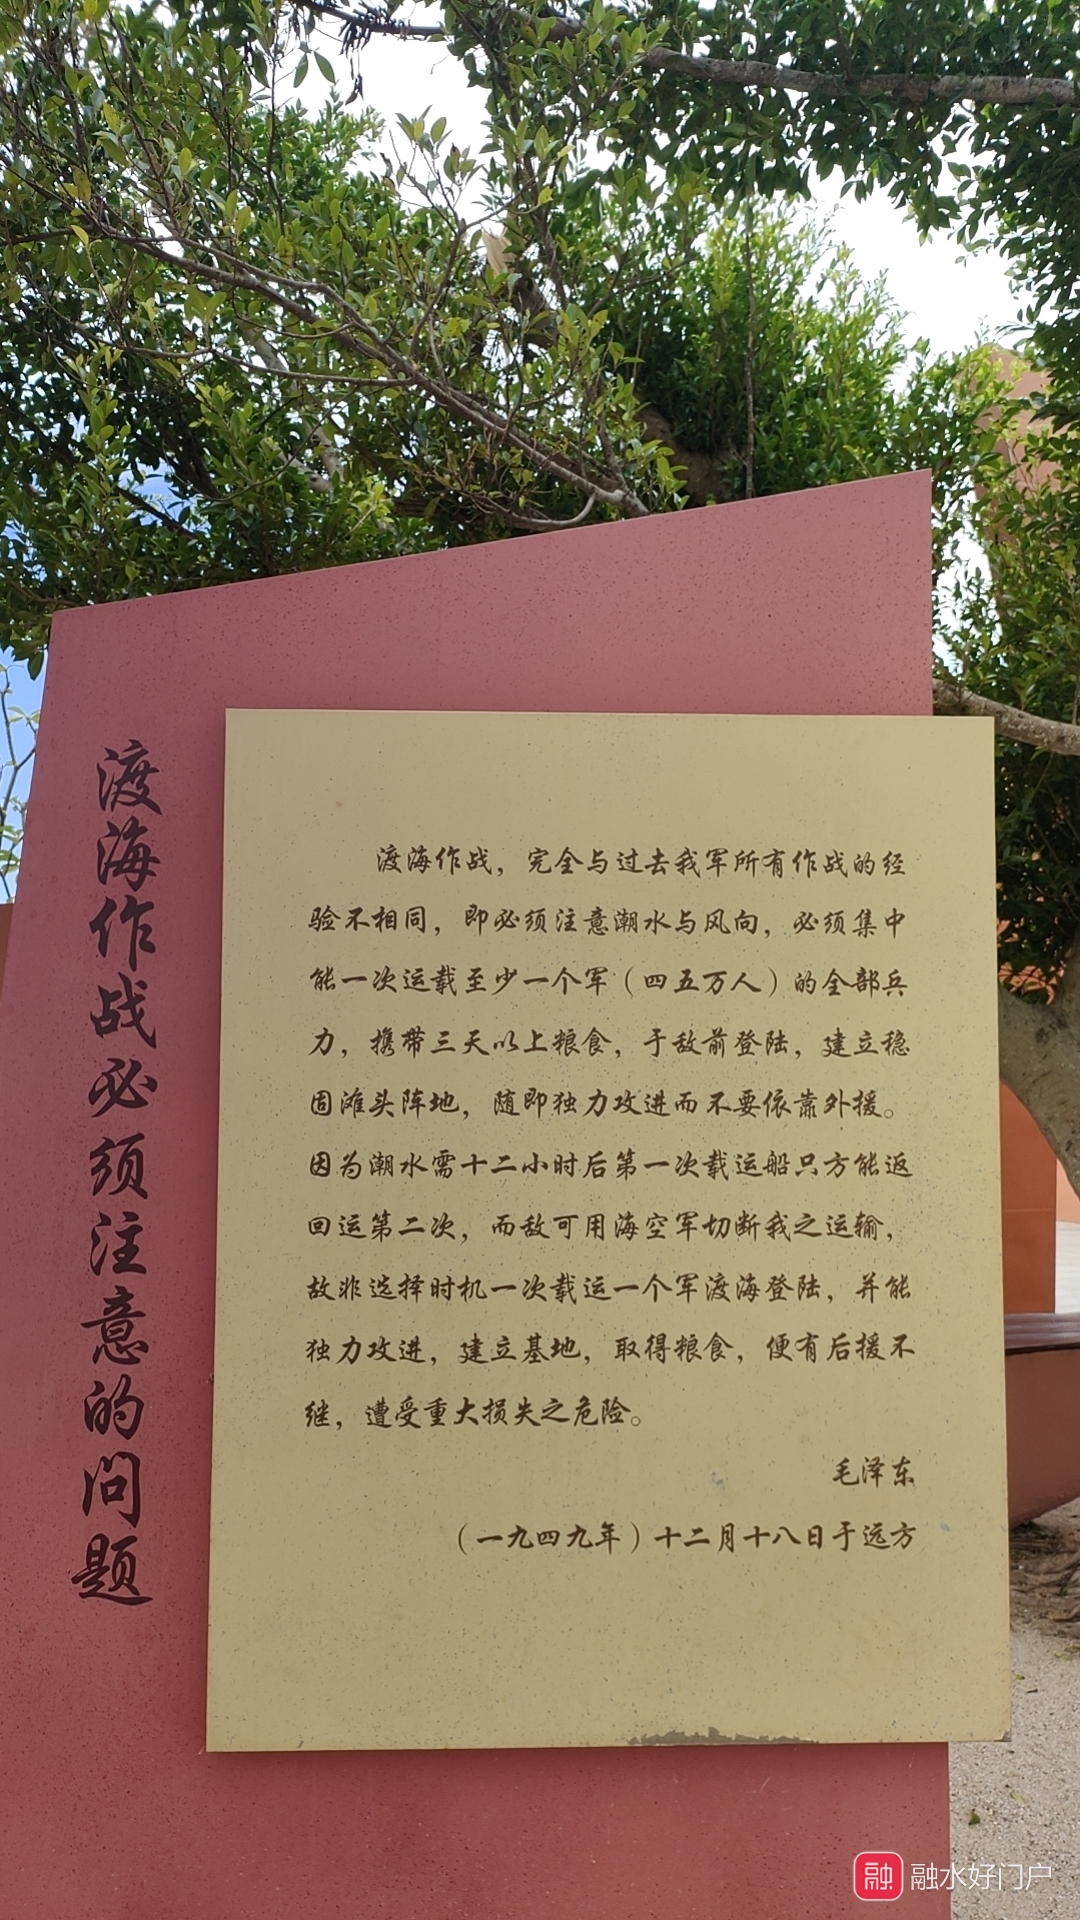 渡海作战必须注意的问题
渡海作战，完全与过去我军所有作战的经
验不相同，即必须注意潮水与风向，必须集中
能一次运载至少一个军（四五万人）的全部兵
力，携带三天以上粮食，于敌前登陆，建立稳
固滩头阵地，随即独力攻进而不要依靠外援。
因为潮水需十二小时后第一次载运船只方能返
回运第二次，而敌可用海空军切断我之运输，
故非选择时机一次载运一个军渡海登陆，并能
独力攻进，建立基地，取得粮食，便有后援不
继，遭受重大损失之危险。
毛泽东
（一九四九年）十二月十八日于远方
融 融水好门户